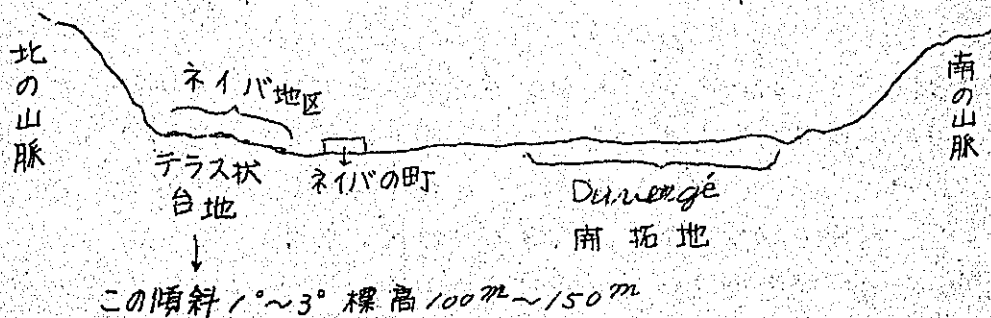 北の山脈
ネイバ地区
テラス状
台地
ネイバの町
Duvergé
開拓地
南の山脈
この傾斜 1°〜3° 標高 100m〜150m